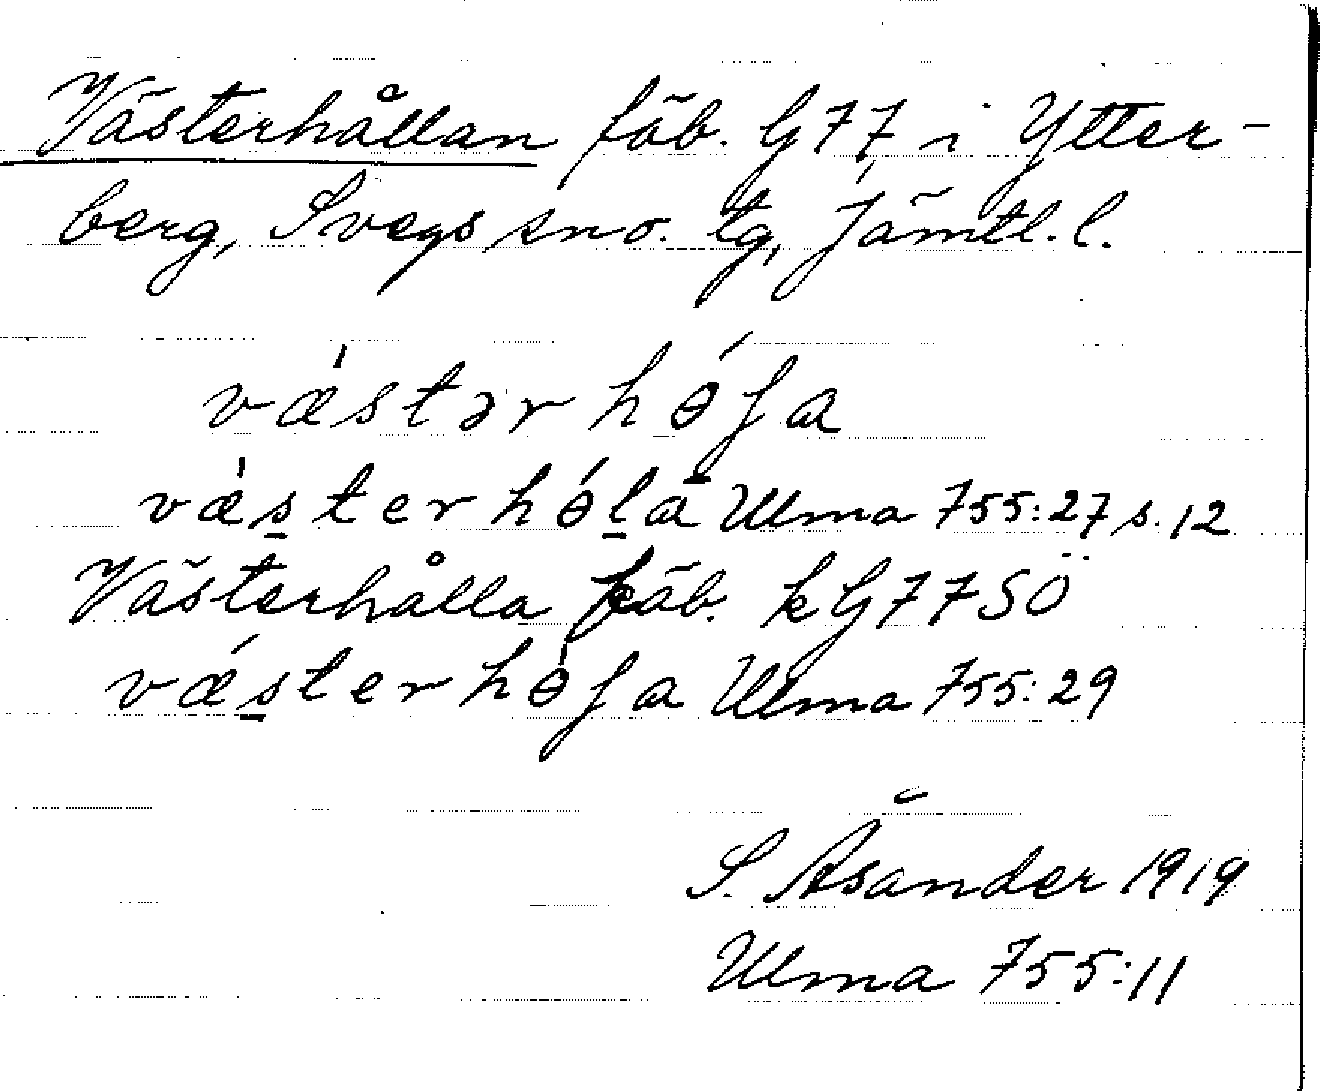 Västerhållan fäb. G77 i Ytter-
berg, Svegs sno. tg, Jämtl. l.
væ̀stərhɵ́ʃa
væ̀s̲terhɵ́l̲a Ulma 755:27 s. 12
Västerhålla fäb. k G77SÖ
vǽs̲terhɵ̀ʃa Ulma 755:29
S. Åsander 1919
Ulma 755:11